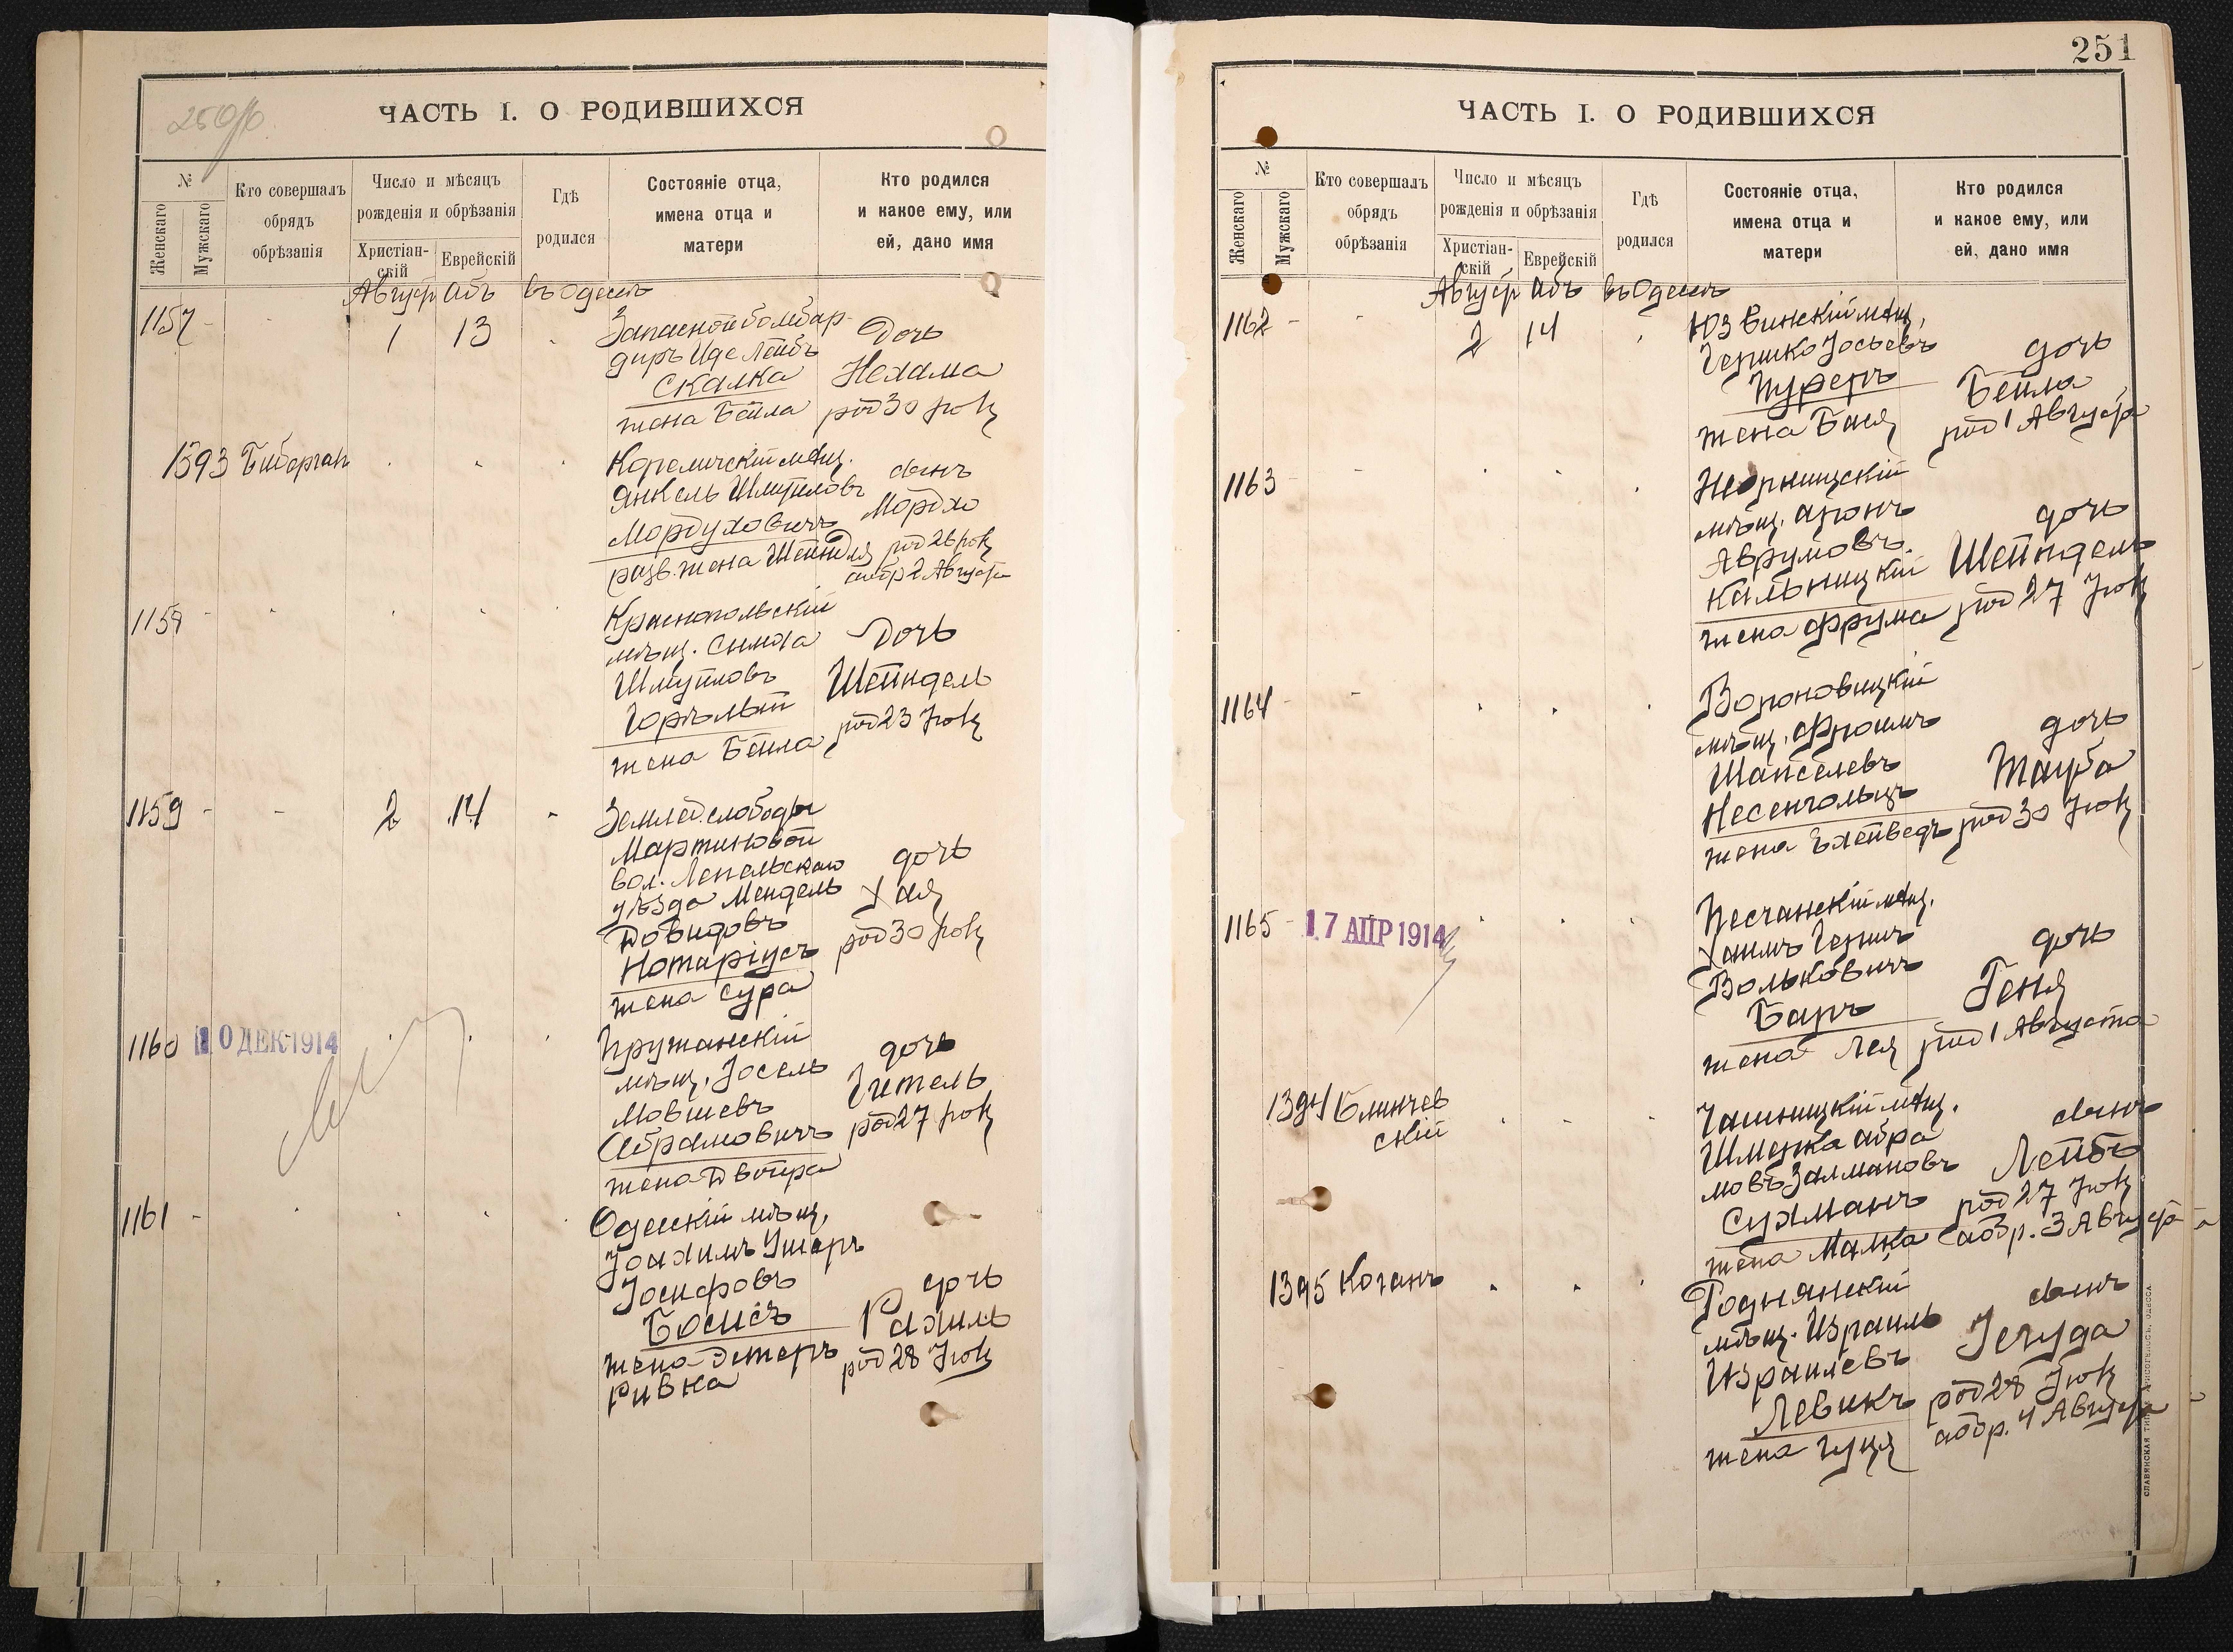 250об
ЧАСТЬ I. О РОДИВШИХСЯ
№
Женскаго
Мужскаго
Кто совершалъ
обрядъ
обрѣзанія
Число и мѣсяцъ
рожденія и обрѣзанія
Христіан-
скій
Еврейскій
Гдѣ
родился
Состояніе отца,
имена отца и
матери
Кто родился
и какое ему, или
ей, дано имя
Август Абъ въ Одессѣ
1157 - - 1 13
Запасной бомбар-
диръ Иде Лейбъ
Скалка
жена Бейла
Дочь
Нехама
род 30 Іюля
1393 Биберган
Кореличскій мѣщ.
Янкель Шмуйловъ
Мордуховичъ
разв. жена Шейндля
сынъ
Мордхо
род 26 Іюля
обр 2 Августа
1158 -
Краснопольскій
мѣщ. Симха
Шмуйловъ
Горѣлый
жена Бейла
Дочь
Шейндель
род 23 Іюля
1159 - - 2 14 -
Землед. слободы
Мартиновой
вол. Лепельскаго
уѣзда Мендель
Довидовъ
Нотаріусъ
жена Сура
дочь
Хая
род 30 Іюля
1160 10 ДЕК 1914
Пружанскій
мѣщ. Іосель
Мовшевъ
Абрамовичъ
жена Двойра
дочь
Гитель
род 27 Іюля
1161 -
Одесскій мѣщ.
Іоахимъ Ушеръ
Іосифовъ
Босисъ
жена Эстеръ
Ривка
дочь
Рахиль
род 28 Іюля
251
ЧАСТЬ I. О РОДИВШИХСЯ
№
Женскаго
Мужскаго
Кто совершалъ
обрядъ
обрѣзанія
Число и мѣсяцъ
рожденія и обрѣзанія
Христіан-
скій
Еврейскій
Гдѣ
родился
Состояніе отца,
имена отца и
матери
Кто родился
и какое ему, или
ей, дано имя
Август Абъ въ Одессѣ
1162 - - 2 14
Юзвинскій мѣщ.
Гершко Іосьевъ
жена Бася
дочь
Бейла
род 1 Августа
1163 -
мѣщ. Аронъ
Аврумовъ
Кальницкій
жена Фрума
дочь
Шейндель
род 27 Іюля
1164 -
Вороновицкій
мѣщ. Фроимъ
Шапселевъ
Несенгольцъ
жена Эхейведъ
дочь
Тауба
род 30 Іюля
1165 - 17 АПР 1914
Песчанскій мѣщ.
Хаимъ Гершъ
Вольковичъ
Баръ
жена Лея
дочь
Геня
род 1 Августа
1394 Блинчев
скій
Чашницкій мѣщ.
Шмерка Абра
мовъ Залмановъ
Сухманъ
жена Малка
сынъ
Лейбъ
род 27 Іюля
абр. 3 Августа
1395 Коганъ
Роднянскій
мѣщ. Израиль
Израилевъ
Левикъ
жена Гуця
сынъ
Іегуда
род 28 Іюля
абр. 4 Августа